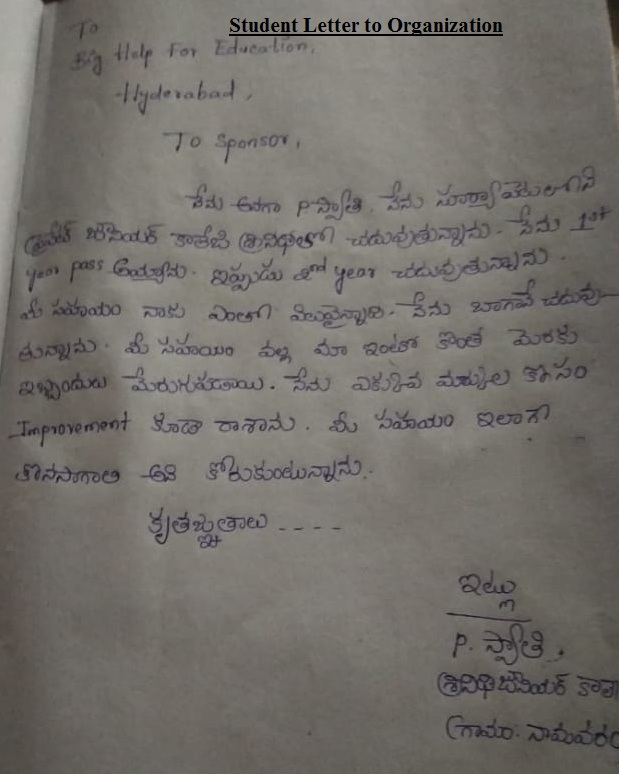 Student Letter to Organization
To
Big Help For Education,
Hyderabad,
To Sponsor,
నేను అనగా P. స్వాతి. నేను సూర్యాపేటలోని
ప్రైవేట్ జూనియర్ కాలేజి శ్రీనిధిలో చదువుతున్నాను. నేను 1st
year pass అయ్యాను. ఇప్పుడు 2nd year చదువుతున్నాను.
మీ సహాయం నాకు ఎంతో విలువైనది. నేను బాగానే చదువు-
తున్నాను. మీ సహాయం వల్ల మా ఇంట్లో కొంత మెరకు
ఇబ్బందులు మెరుగుపడ్డాయి. నేను ఎక్కువ మార్కుల కోసం
Improvement కూడా రాశాను. మీ సహాయం ఇలాగే
కొనసాగాలి అని కోరుకుంటున్నాను.
కృతజ్ఞతలు ----
ఇట్లు
P. స్వాతి,
శ్రీనిధి జూనియర్ కాలే
గ్రామం: నామవరం